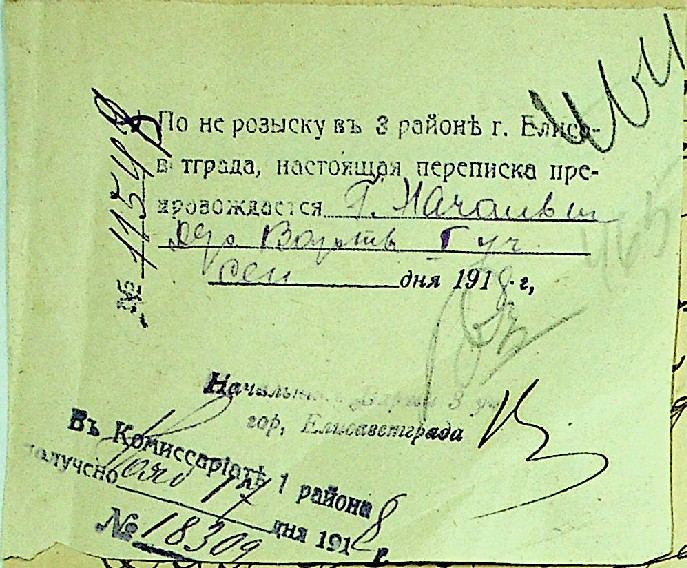 По не розыску въ 3 районѣ г. Елиса-
в тграда, настоящая переписка пре-
провождается Г. Начальни
Варты
дня 1918 г,
№ 11549
464
465
Начальникъ Варты 3 уч
гор, Елисаветграда
Въ Комиссаріатѣ 1 района
получено 17 дня 1918 г.
№ 18309